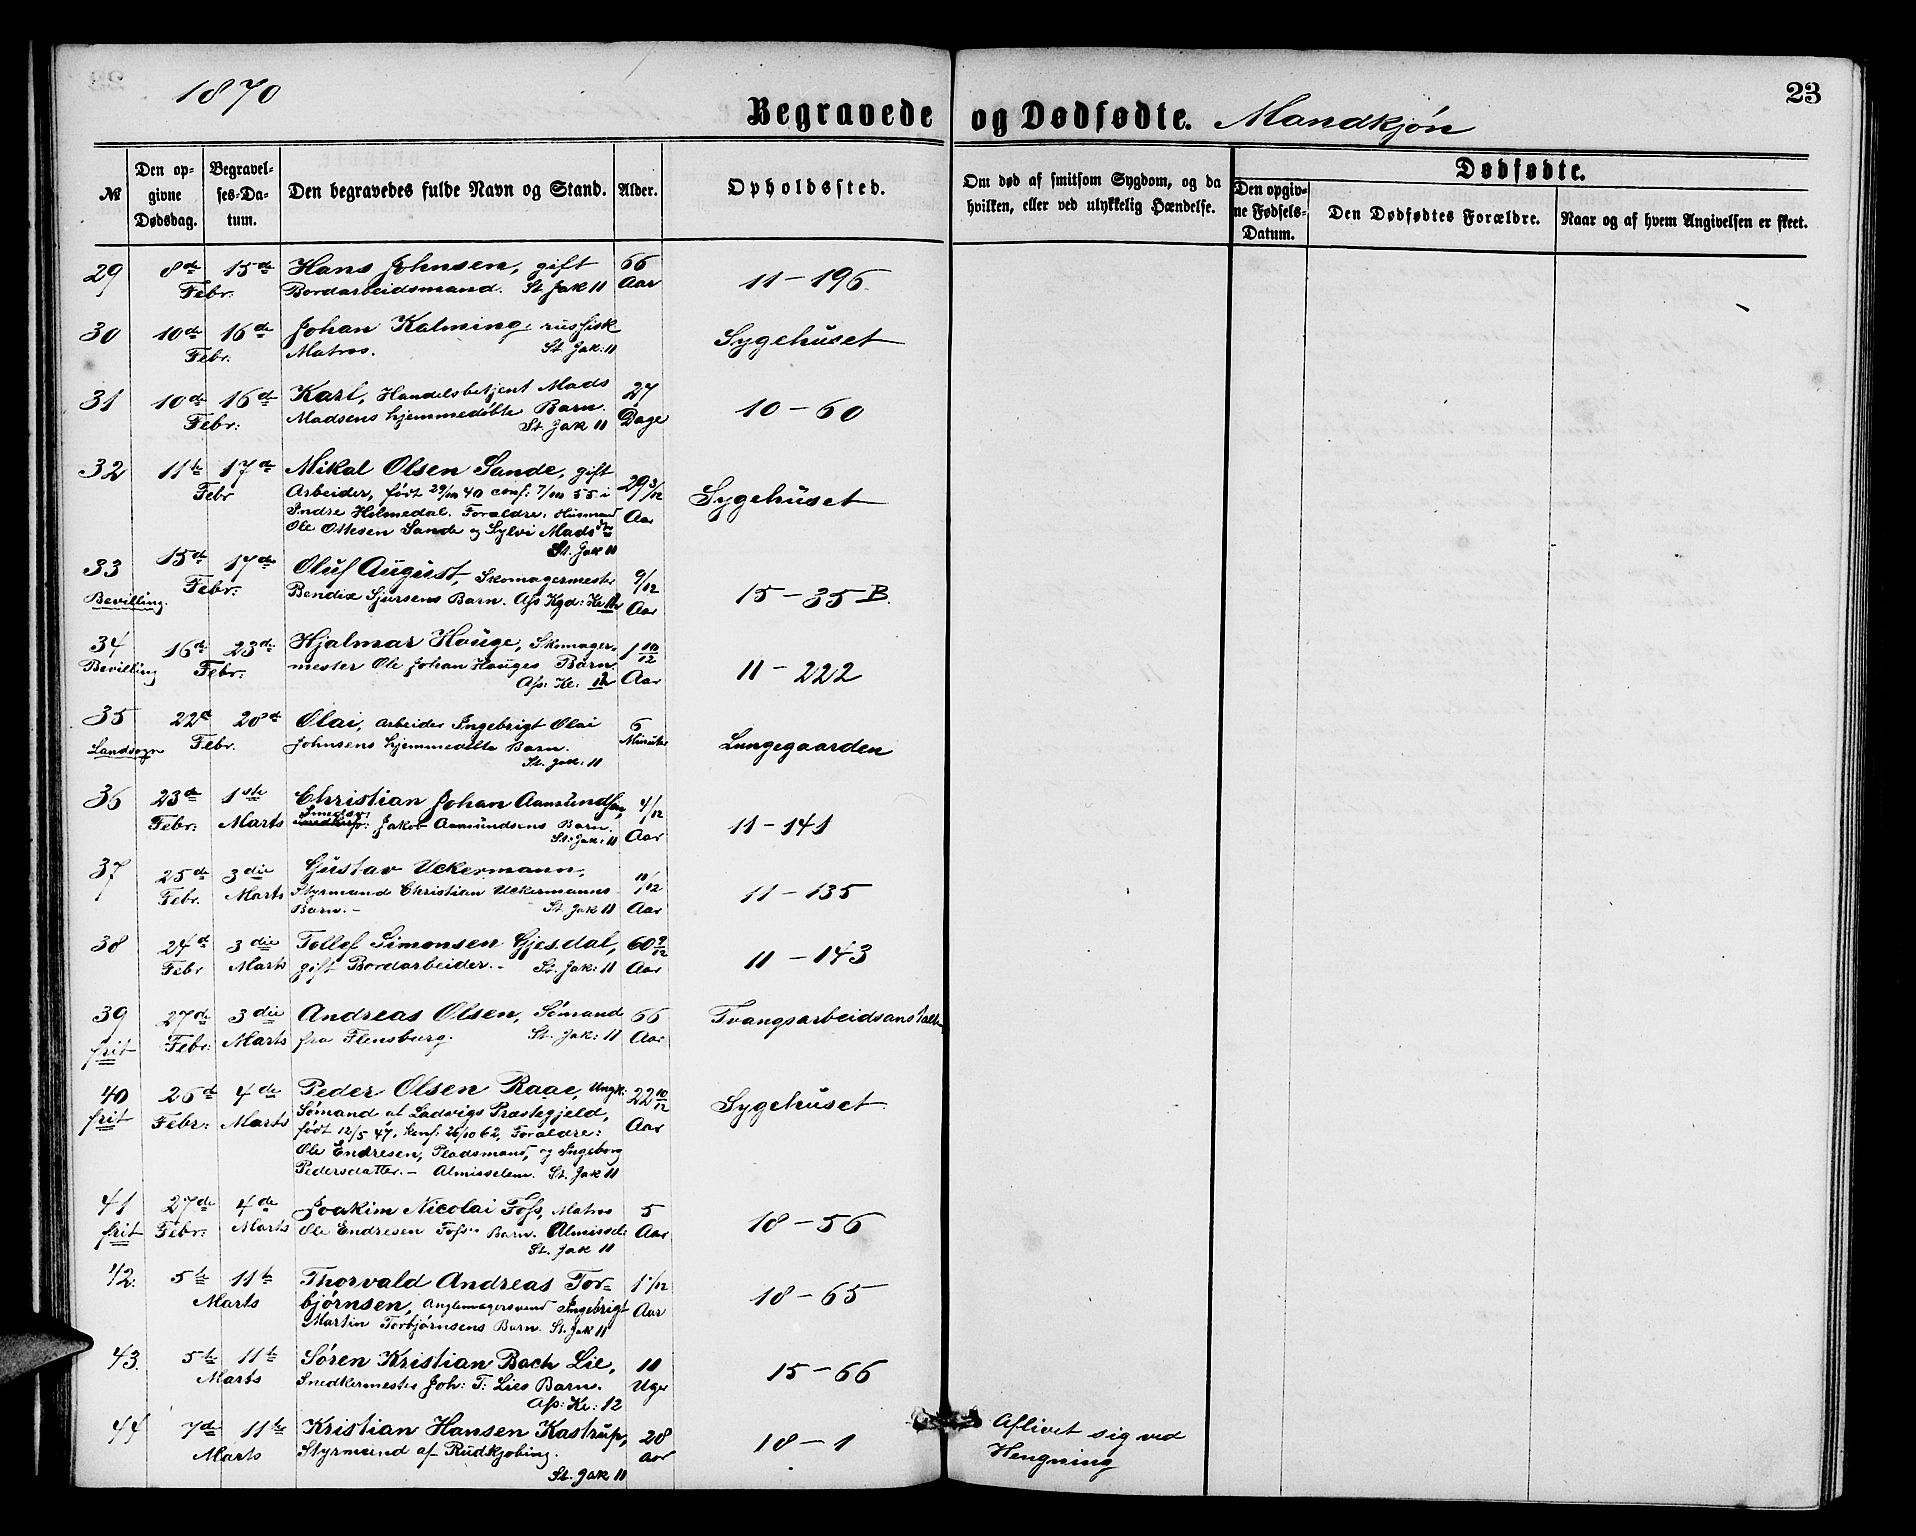 1870
Begravede og Dødfødte. Mandkjøn
23
№
Den opgivne Dødsdag.
Begravelses-Datum.
Den begravedes fulde Navn og Stand.
Alder.
Opholdssted.
Om død af smitsom Sygdom, og da hvilken, eller ved ulykkelig Hændelse.
Dødfødte.
Den opgivne Fødsels-Datum.
Den Dødfødtes Forældre.
Naar og af hvem Angivelsen er skeet.
29 8de 15de Hans Johnsen, gift 66
Febr. Bordarbeidsmand. St. Jak 11 Aar 11-196
30 10de 16de Johan Kalming, russisk
Febr: Matros. St. Jak: 11 Sygehuset
31 10de 16de Karl, Handelsbetjent Mads 27
Febr: Madsens hjemmedøbte Barn. Dage 10-60
St. Jak 11
32 11te 17de Mikal Olsen Sande, gift 29 3/12
Febr Arbeider, født 29/10 40 conf: 7/10 55 i Aar Sygehuset
Indre Holmedal. Forældre: Husmand
Ole Ottesen Sande og Sylvi Madsdtr
St. Jak 11
33 15de 17de Oluf August, Skomagermester 9/12
Bevilling. Febr: Bendix Sjursens Barn. Ass Kgd: Kl 12 Aar 15-35 B.
34 16de 23de Hjalmar Houge, Skomager- 1 10/12
Bevilling Febr: mester Ole Johan Houges Barn. Aar 11-222
Ass: Kl: 12
35 22d 28de Olai, Arbeider Ingebrigt Olai 6
Landsogn Febr. Johnsens hjemmedøbte Barn. Minuter Lungegaarden
St. Jak: 11
36 23de 1ste Christian Johan Aamundsen, 4/12
Febr: Marts Jakob Aamundsens Barn. Aar 11-141
St: Jak: 11
37 25de 3die Gustav Uckermann,
Febr. Marts Styrmand Christian Uckermanns 11/12
Barn.- St. Jak 11 Aar 11-135
38 24d 3die Tollef Simonsen Gjesdal, 60 9/12
Febr Marts gift Bordarbeider.- St. Jak: 11 Aar 11-143
39 27de 3die Andreas Olsen, Sømand 66
frit Febr: Marts fra Flensburg. St. Jak: 11 Aar Tvangsarbeidsanstalten
40 26d 4de Peder Olsen Raae, Ungk: 22 10/12
frit Febr: Marts Sømand af Ladvigs Præstegjeld, Aar Sygehuset
født 12/5 47, konf: 26/10 62, Forældre:
Ole Endresen, Pladsmand, og Ingeborg
Pedersdatter.- Almisselem. St. Jak 11
41 27de 4de Joakim Nicolai Foss, Matros 5
frit Febr: Marts Ole Endresen Foss's Barn. Almissel: Aar 18-56
St. Jak 11
42. 5te 11te Thorvald Andreas Tor- 1 1/12
Marts bjørnsen, Anglemagersvend Ingebrigt Aar 18-65
Martin Torbjørnsens Barn. St. Jak 11
43. 5te 11te Søren Kristian Bach Lie, 11
Marts Snedkermester Joh: T: Lies Barn. Uger 15-66
Ass: Kl: 12
44 7de 11te Kristian Hansen Kastrup, 28
Marts Styrmand af Rudkjøbing. Aar 18-1
St. Jak 11
Aflivet sig ved
Hengning